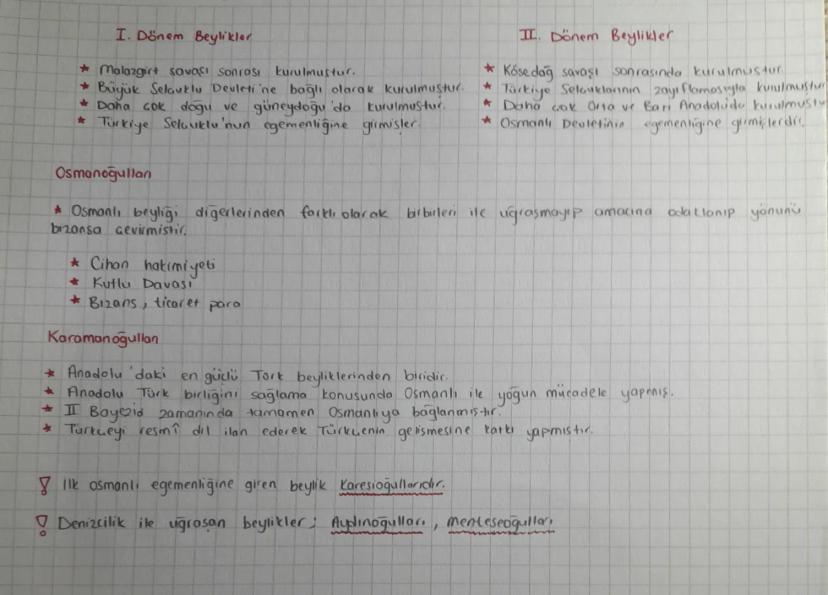 I. Dönem Beylikler
* Malazgirt savaşı sonrası kurulmuştur.
* Büyük Selçuklu Devleti'ne bağlı olarak kurulmuştur.
* Daha çok doğu ve güneydoğu'da kurulmuştur.
* Türkiye Selçuklu'nun egemenliğine girmişler.
II. Dönem Beylikler
* Kösedağ savaşı sonrasında kurulmuştur.
* Türkiye Selçuklarının zayıflamasıyla kurulmuştur
* Daha çok Orta ve Batı Anadolu'da kurulmuştu
* Osmanlı Devletinin egemenliğine girmişlerdir.
Osmanoğulları
* Osmanlı beyliği diğerlerinden farklı olarak birbirleri ile uğraşmayıp amacına odatlanıp yönünü
bizansa çevirmiştir.
* Cihan hakimiyeti
* Kutlu Davası
* Bizans, ticaret para
Karamanoğulları
* Anadolu'daki en güçlü Türk beyliklerinden biridir.
* Anadolu Türk birliğini sağlama konusunda Osmanlı ile yoğun mücadele yapmış.
* II Bayezid zamanında tamamen Osmanlıya bağlanmıştır.
* Türkçeyi resmî dil ilan ederek Türkçenin gelişmesine katkı yapmıştır.
! İlk osmanlı egemenliğine giren beylik Karesioğullarıdır.
! Denizcilik ile uğraşan beylikler; Aydınoğulları, menteşeoğulları